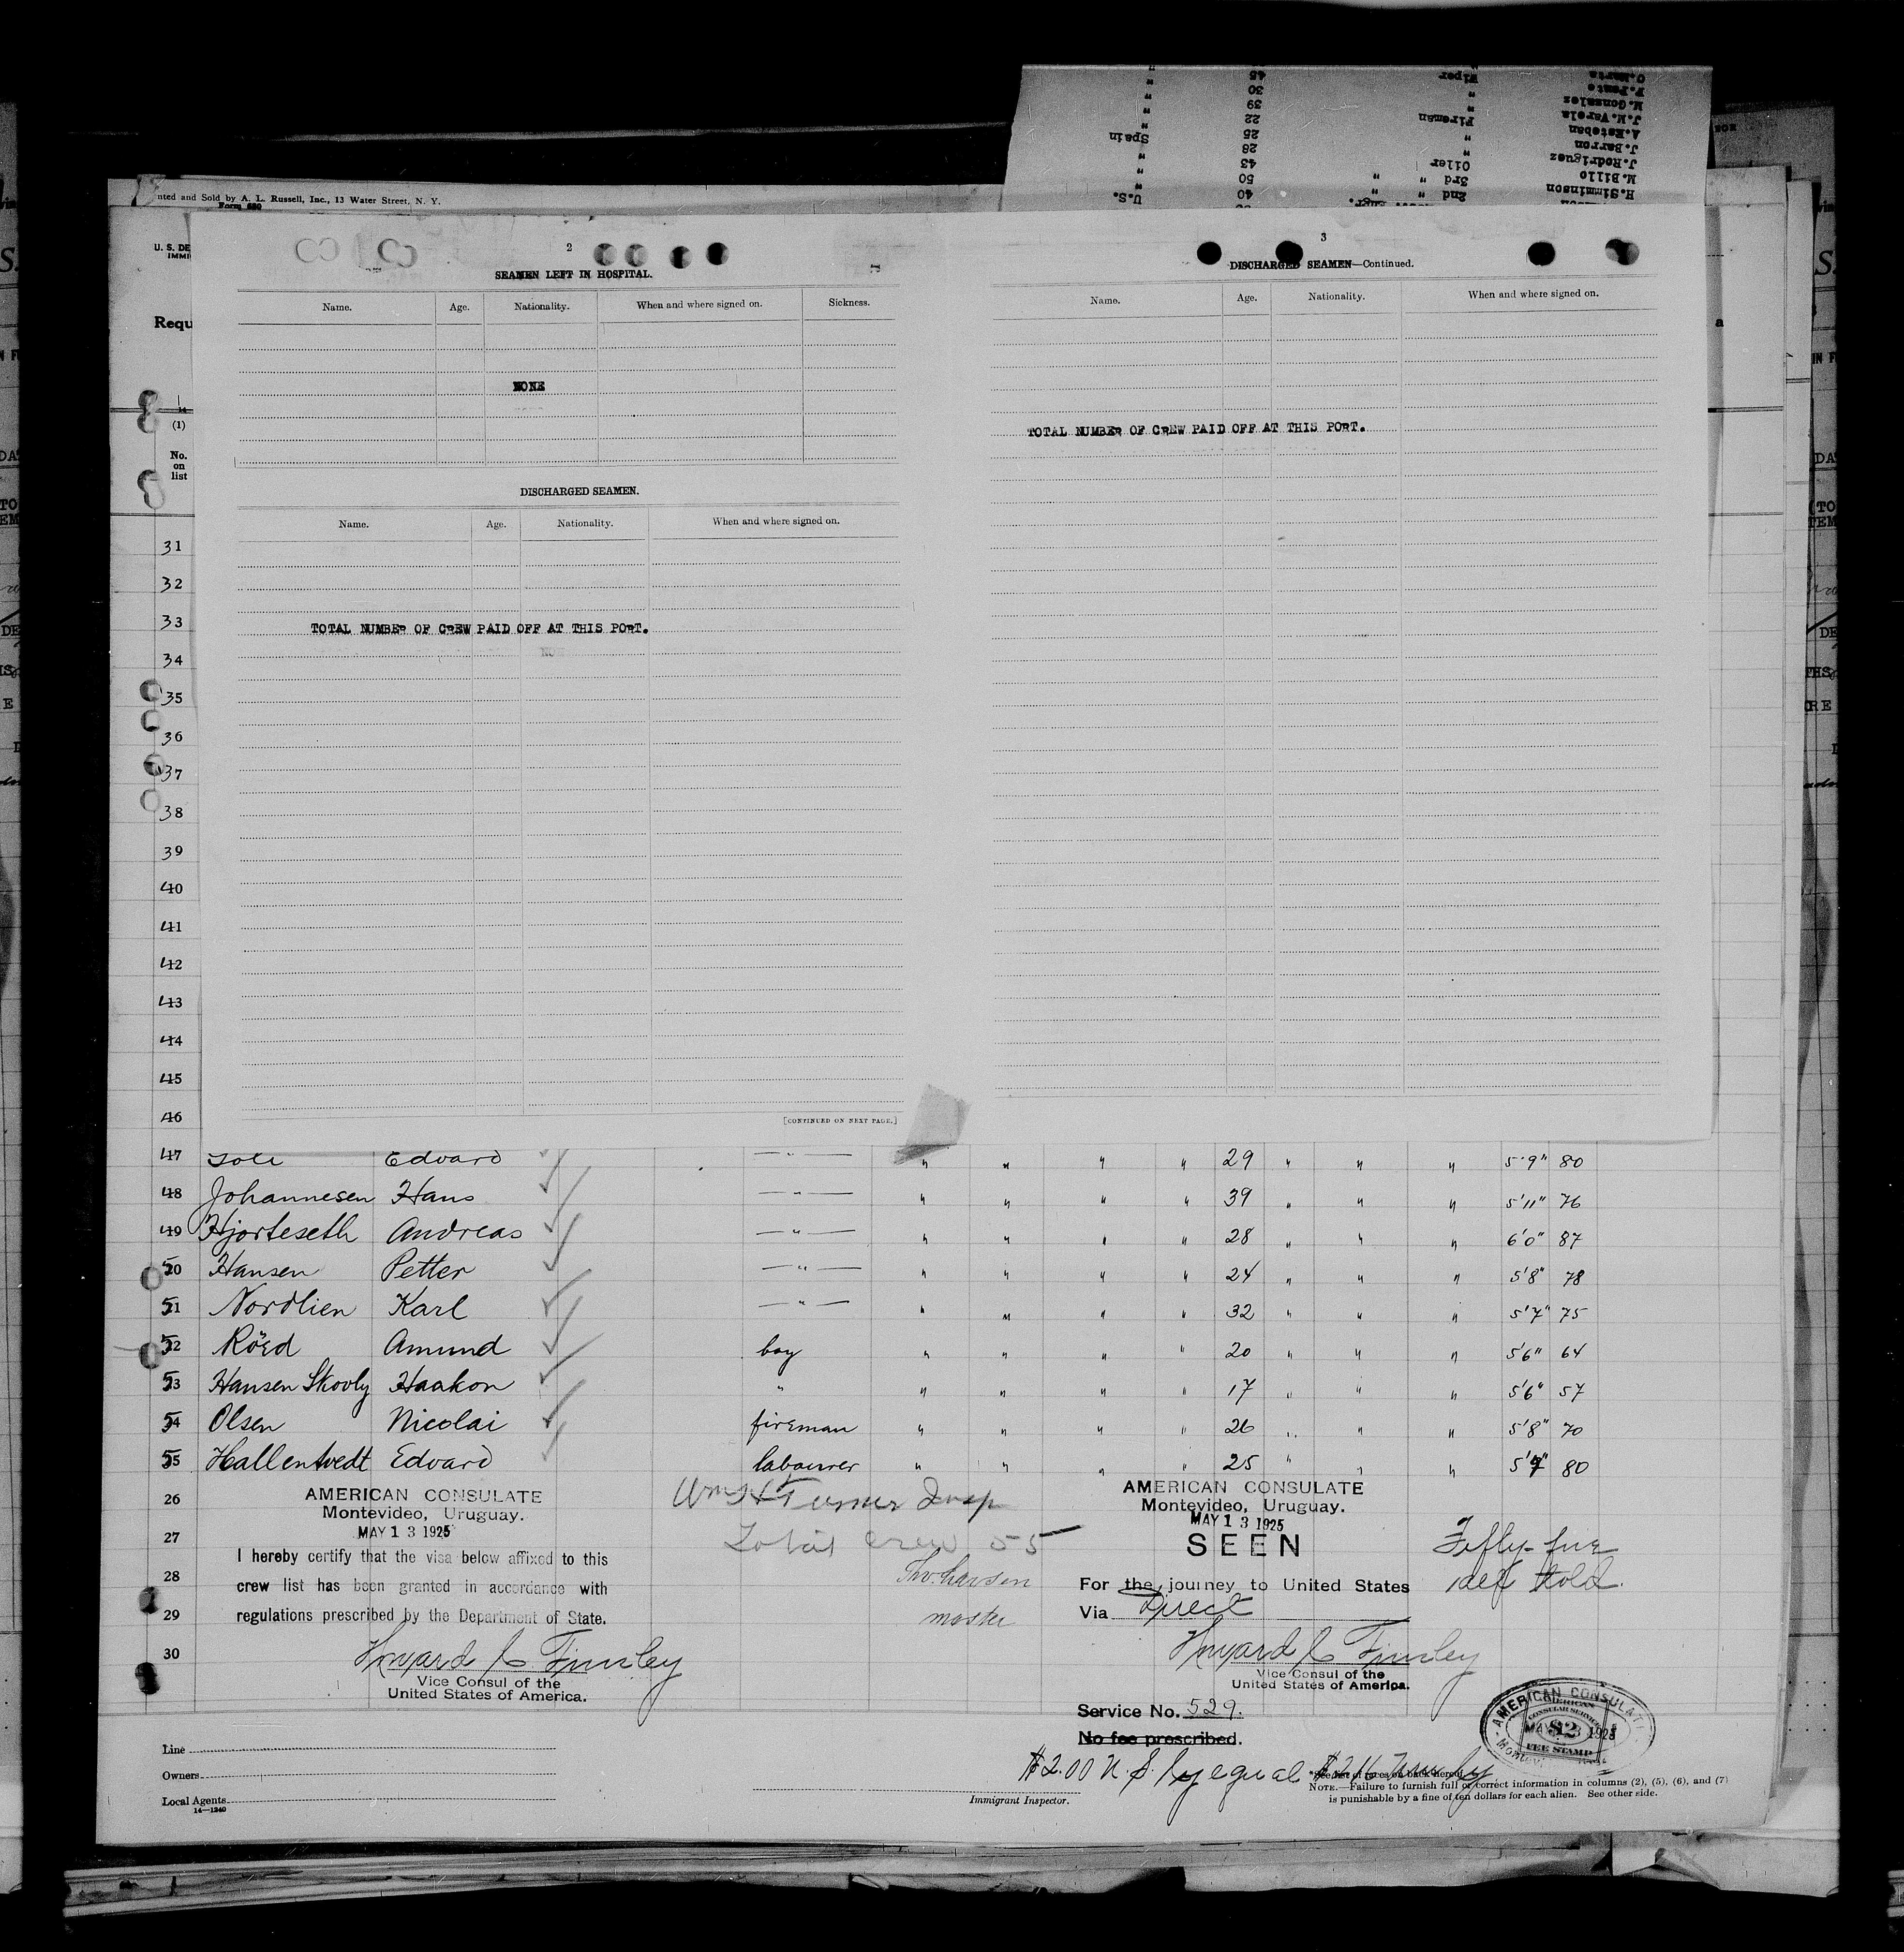 O.Marta Wiper 45 "
F.Pente " 30 "
M.Gonzalez " 39 "
J.M.Varela Fireman 22 "
A.Esteban " 25 Spain
J.Barron " 28
J.Rodriguez Oiler 43 "
M.Billo 3rd " " 50 "
H.Simminson 2nd " " 40 U.S.
nted and Sold by A. L. Russell, Inc., 13 Water Street, N. Y.
Form 680
U. S. DE
IMMI
Requ
(1)
No.
on
list
2
SEAMEN LEFT IN HOSPITAL.
Name. Age. Nationality. When and where signed on. Sickness.
NONE
DISCHARGED SEAMEN.
Name. Age. Nationality. When and where signed on.
TOTAL NUMBER OF CREW PAID OFF AT THIS PORT.
[CONTINUED ON NEXT PAGE.]
3
DISCHARGED SEAMEN—Continued.
Name. Age. Nationality. When and where signed on.
TOTAL NUMBER OF CREW PAID OFF AT THIS PORT.
31
32
33
34
35
36
37
38
39
40
41
42
43
44
45
46
47 Edvard — " — " " " " 29 " " " 5'9" 80
48 Johannesen Hans — " — " " " " 39 " " " 5'11" 76
49 Hjorteseth Andreas — " — " " " " 28 " " " 6'0" 87
50 Hansen Petter — " — " " " " 24 " " " 5'8" 78
51 Nordlien Karl — " — " " " " 32 " " " 5'7" 75
52 Röed Amund boy " " " " 20 " " " 5'6" 64
53 Hansen Skovly Haakon " " " " " 17 " " " 5'6" 57
54 Olsen Nicolai fireman " " " " 26 " " " 5'8" 70
55 Hallentvedt Edvard labourer " " " " 25 " " " 5'7" 80
26
27
28
29
30
AMERICAN CONSULATE
Montevideo, Uruguay.
MAY 13 1925
I hereby certify that the visa below affixed to this
crew list has been granted in accordance with
regulations prescribed by the Department of State.
Howard C. Finnley
Vice Consul of the
United States of America.
Wm H Turner Insp
Total crew 55
Thv. Larsen
master
AMERICAN CONSULATE
Montevideo, Uruguay.
MAY 13 1925
SEEN
For the journey to United States
Via Direct
Fifty-five
all told.
Howard C. Finnley
Vice Consul of the
United States of America.
Service No. 529.
No fee prescribed.
$2.00 U.S. Cy equal $2.16
AMERICAN CONSULATE
AMERICAN
CONSULAR SERVICE
$2
MAY 13 1925
FEE STAMP
Line
Owners
Local Agents
14—1240
Immigrant Inspector.
NOTE.—Failure to furnish full or correct information in columns (2), (5), (6), and (7)
is punishable by a fine of ten dollars for each alien. See other side.